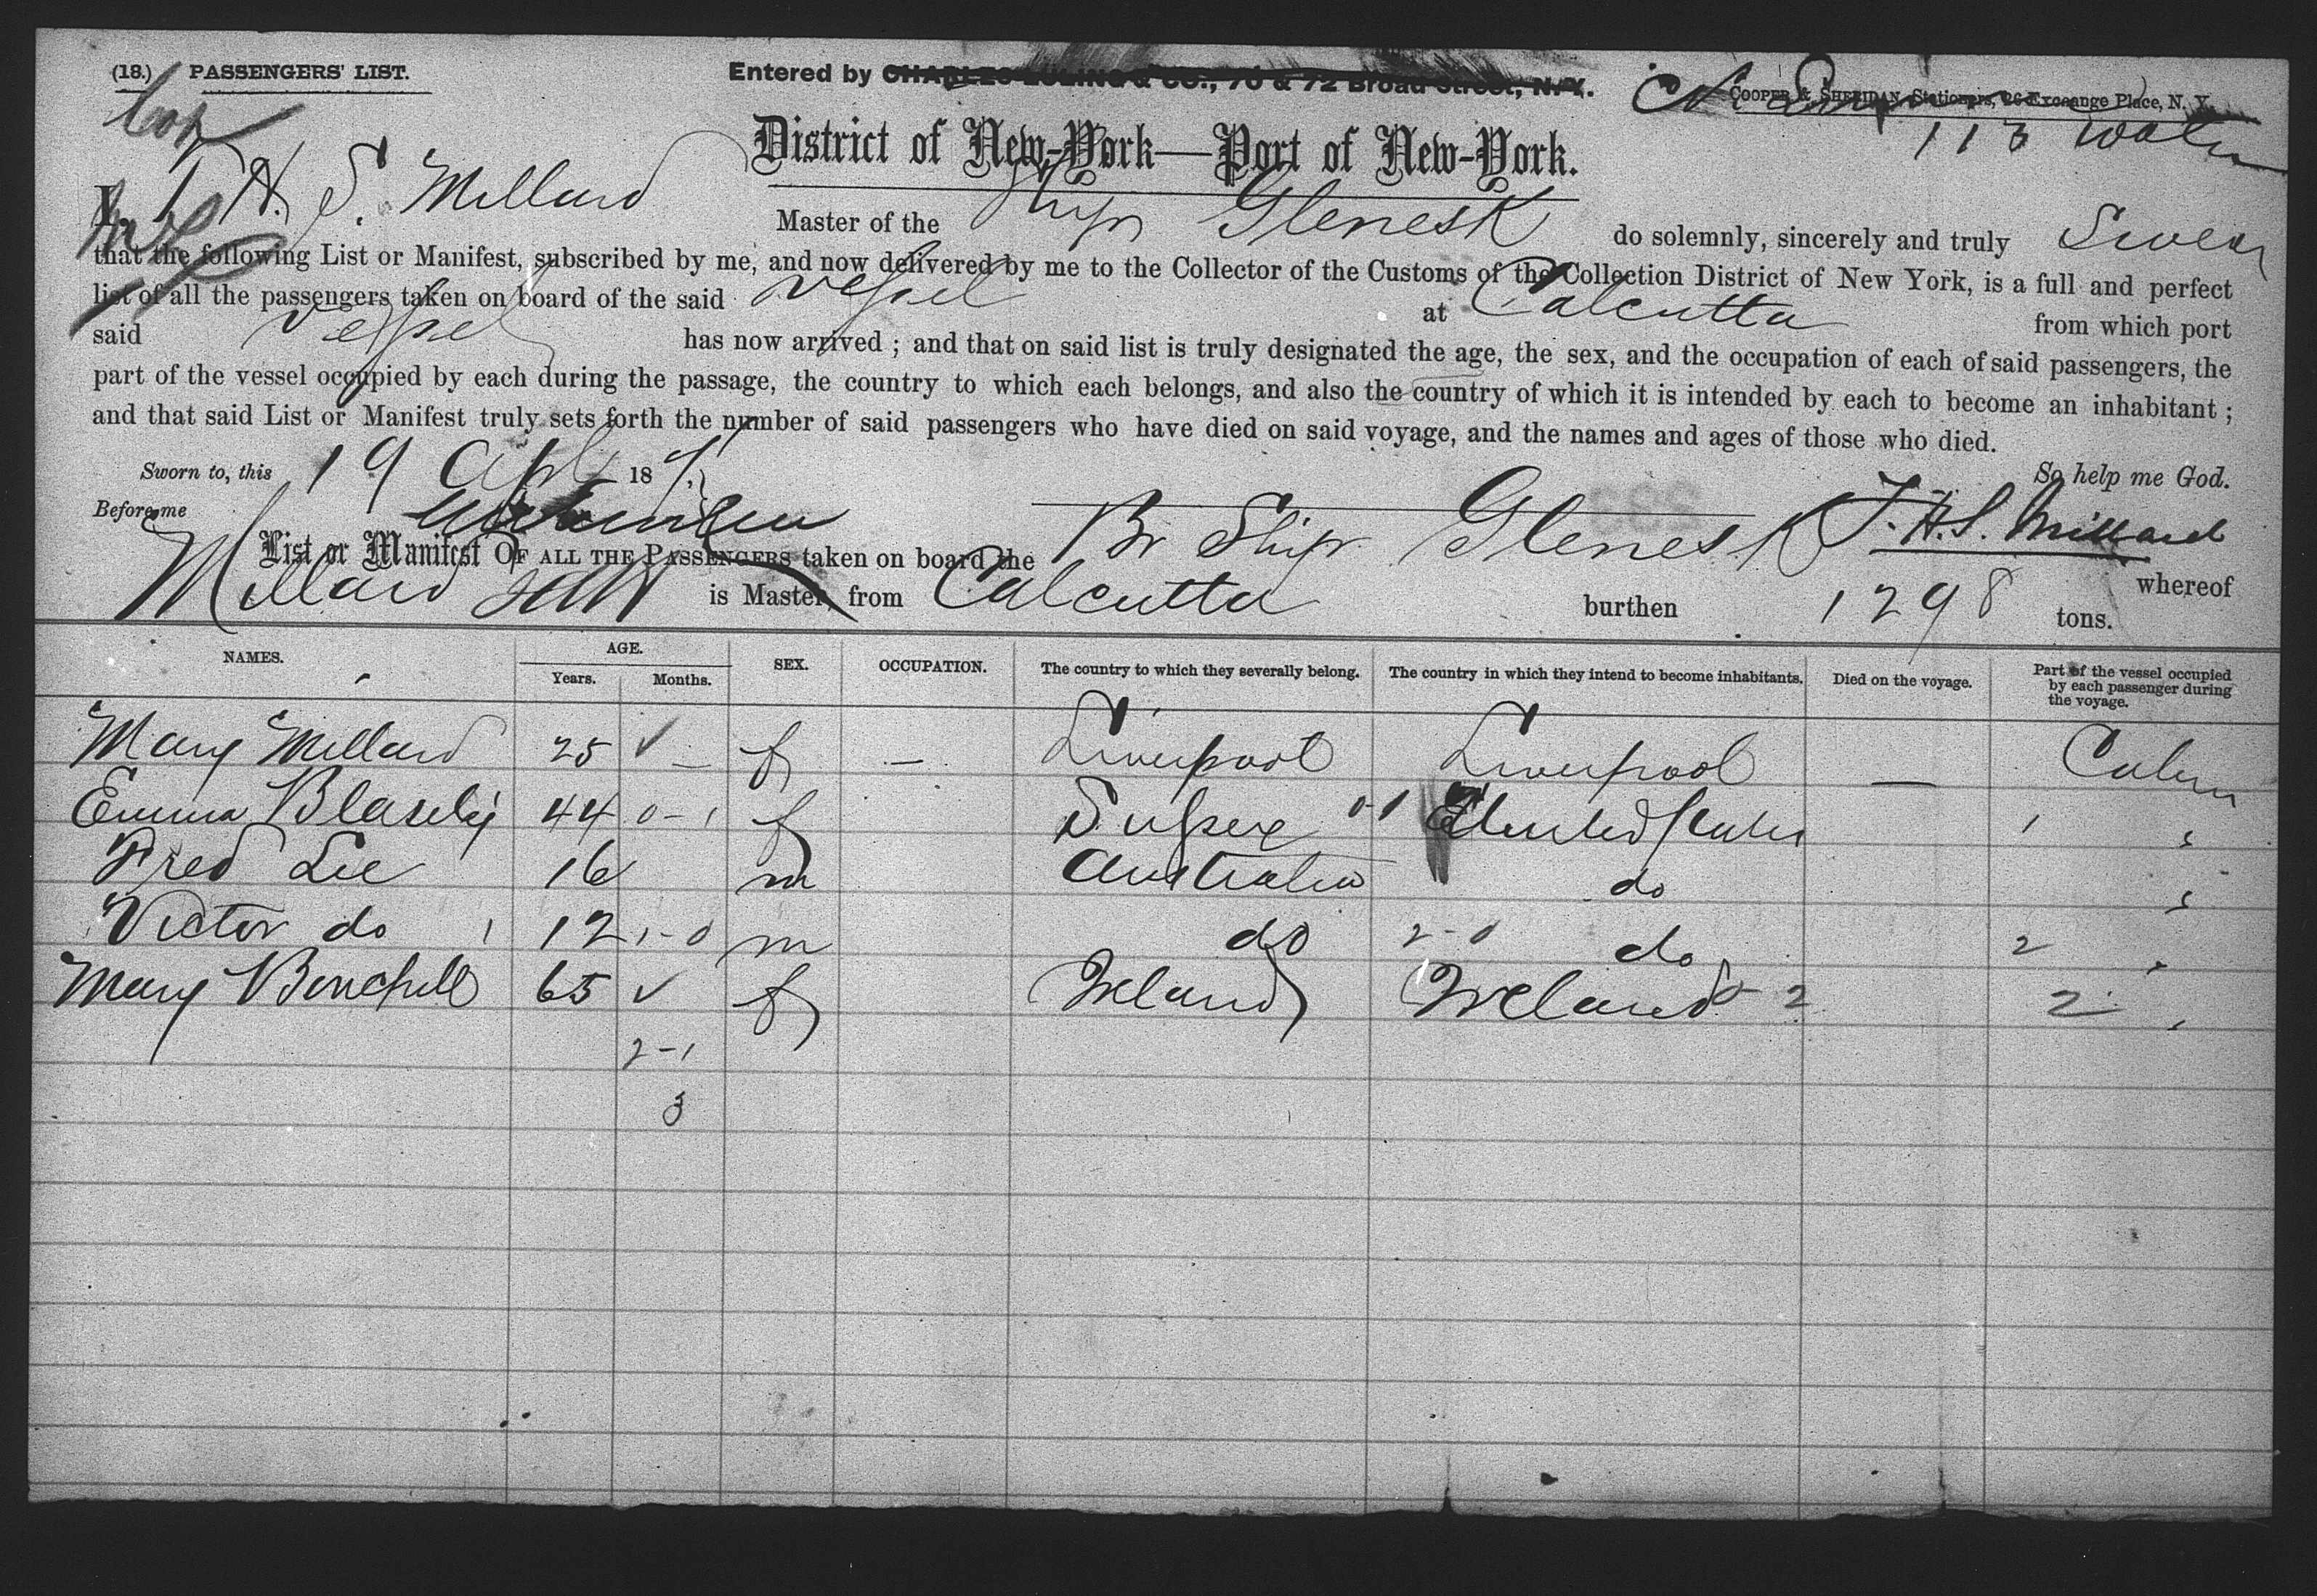 (18.) PASSENGERS' LIST.
Entered by CHARLES & CO., 70 & 72 Broad Street, N.Y.
COOPER & SHERIDAN, Stationers, 26 Exchange Place, N. Y.
113
District of New-York—Port of New-York.
I, T. H. S. Millard Master of the Ship Glenesk do solemnly, sincerely and truly Swear
that the following List or Manifest, subscribed by me, and now delivered by me to the Collector of the Customs of the Collection District of New York, is a full and perfect
list of all the passengers taken on board of the said vessel at Calcutta from which port
said vessel has now arrived; and that on said list is truly designated the age, the sex, and the occupation of each of said passengers, the
part of the vessel occupied by each during the passage, the country to which each belongs, and also the country of which it is intended by each to become an inhabitant;
and that said List or Manifest truly sets forth the number of said passengers who have died on said voyage, and the names and ages of those who died.
Sworn to, this 19 Apl 18 So help me God.
Before me T. H. S. Millard
List or Manifest OF ALL THE PASSENGERS taken on board the Br Ship Glenesk whereof
Millard is Master, from Calcutta burthen 1298 tons.
NAMES. AGE. Years. Months. SEX. OCCUPATION. The country to which they severally belong. The country in which they intend to become inhabitants. Died on the voyage. Part of the vessel occupied by each passenger during the voyage.
Mary Millard 25 ✓ – f – Liverpool Liverpool — Cabin
Emma 44 0-1 f 0-1 United States 1 "
Fred Lee 16 m Australia do "
Victor do 1 12 1-0 m do 2-0 do 2 "
Mary 65 ✓ f Ireland Ireland 0-2 2 "
2-1
3